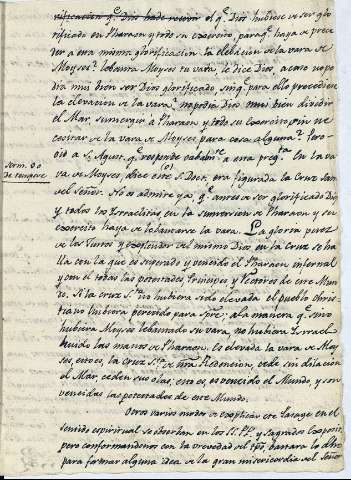 nificacion q.e Dios
el q.e Dios hubiese de ser glo
rificado en Pharaon y todo su exercito, para q.e haya de prece
der a esta misma glorificacion la elevacion de la vara de
Moyses? Levanta Moyses tu vara, le dice Dios, acaso no po
dia mui bien ser Dios glorificado sin q.e para ello precediera
la elevacion de la vara? no podia Dios mui bien dividir
el Mar sumergir a Pharaon, y todo su Exercito, sin ne
cesitar de la vara de Moyses para cosa alguna? Pero
oid a S. Agust.n q.e responde a esta preg.ta En la va
Serm. 90
de tempore
ra de Moyses, dice este S.to Doct.r era figurada la Cruz san
ta del Señor. No os admire ya, q.e antes de ser glorificado Dios
y todos los Israelitas, en la sumersion de Pharaon y su
exercito haya de levantarse la vara. La gloria
de los Justos y del mismo Dios en la Cruz se ha
lla con la que es y vencido el Pharaon infernal
y con el todas las potestades Principes y Rectores de este Mun
do. Si la cruz S.ta no hubiera sido elevada el pueblo chris
tiano hubiera perecido para spre; a la manera q.e si no
hubiera Moyses levantado su vara, no hubiera Israel
huido las manos de Pharaon. Es elevada la vara de Moy
ses, esto es, la Cruz S.ta de nra Redencion, cede sin dilacion
el Mar ceden sus olas, esto es, es vencido el Mundo, y son
vencidas las potestades de este Mundo.
Otros varios modos de explicar este Pasage en el
sentido espiritual se observan en los SS. PP. y Sagrados Expositores,
pero conformandonos con la brevedad del tpo, bastara lo dho
para formar alguna idea de la gran misericordia del Señor